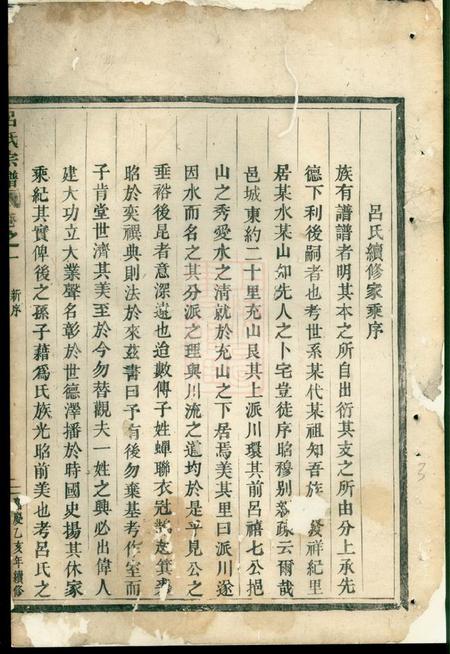 呂氏續修家乘序
族有譜譜者明其本之所自出衍其支之所由分上承先
德下利後嗣者也考世系某代某祖知吾族 發祥紀里
居某水某山知先人之卜宅豈徒序昭穆别親疎云爾哉
邑城東約二十里充山艮其上派川環其前呂禧七公挹
山之秀愛水之清就於充山之下居焉美其里曰派川遂
因水而名之其分派之理與川流之道均於是乎見公之
垂裕後昆者意深遠也迨數傳子姓蟬聯衣冠 起箕裘
昭於奕禩典則法於來茲書曰予有後勿棄基考作室而
子肯堂世濟其美至於今勿替觀夫一姓之興必出偉人
建大功立大業聲名彰於世德澤播於時國史揚其休家
乘紀其實俾後之孫子藉爲氏族光昭前美也考呂氏之
呂氏宗譜 卷之一 新序 二 慶乙亥年續修